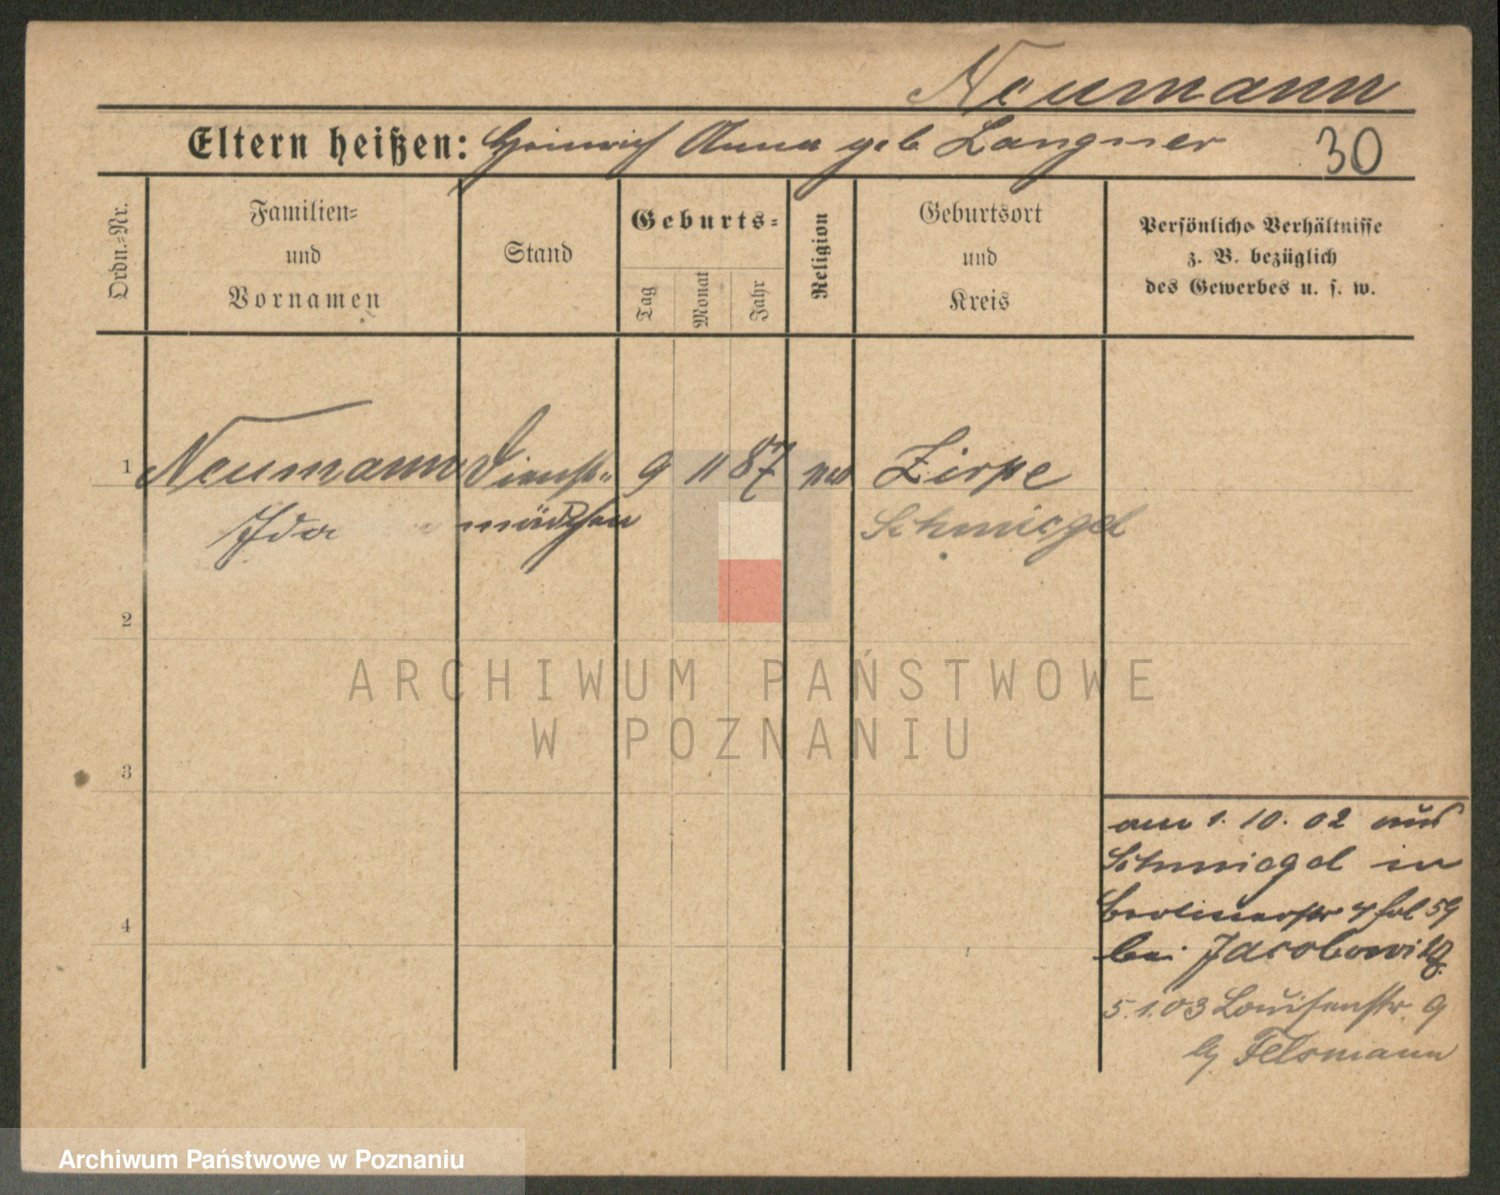 Neumann
Eltern heißen: Heinrich Anna geb Langner 30
Ordn.=Nr.
Familien=
und
Vornamen
Stand
Geburts=
Tag
Monat
Jahr
Religion
Geburtsort
und
Kreis
Persönliche Verhältnisse
z. B. bezüglich
des Gewerbes u. s. w.
1 Neumann Dienst= 9 11 87 Zirpe
Ida mädchen Schmiegel
2
ARCHIWUM PAŃSTWOWE
W POZNANIU
3
am 1. 10. 02 aus
Schmiegel in
4
Berlinerstr 4 59
bei Jacobowitz
5.1.03 Louisenstr. 9
Felsmann
Archiwum Państwowe w Poznaniu